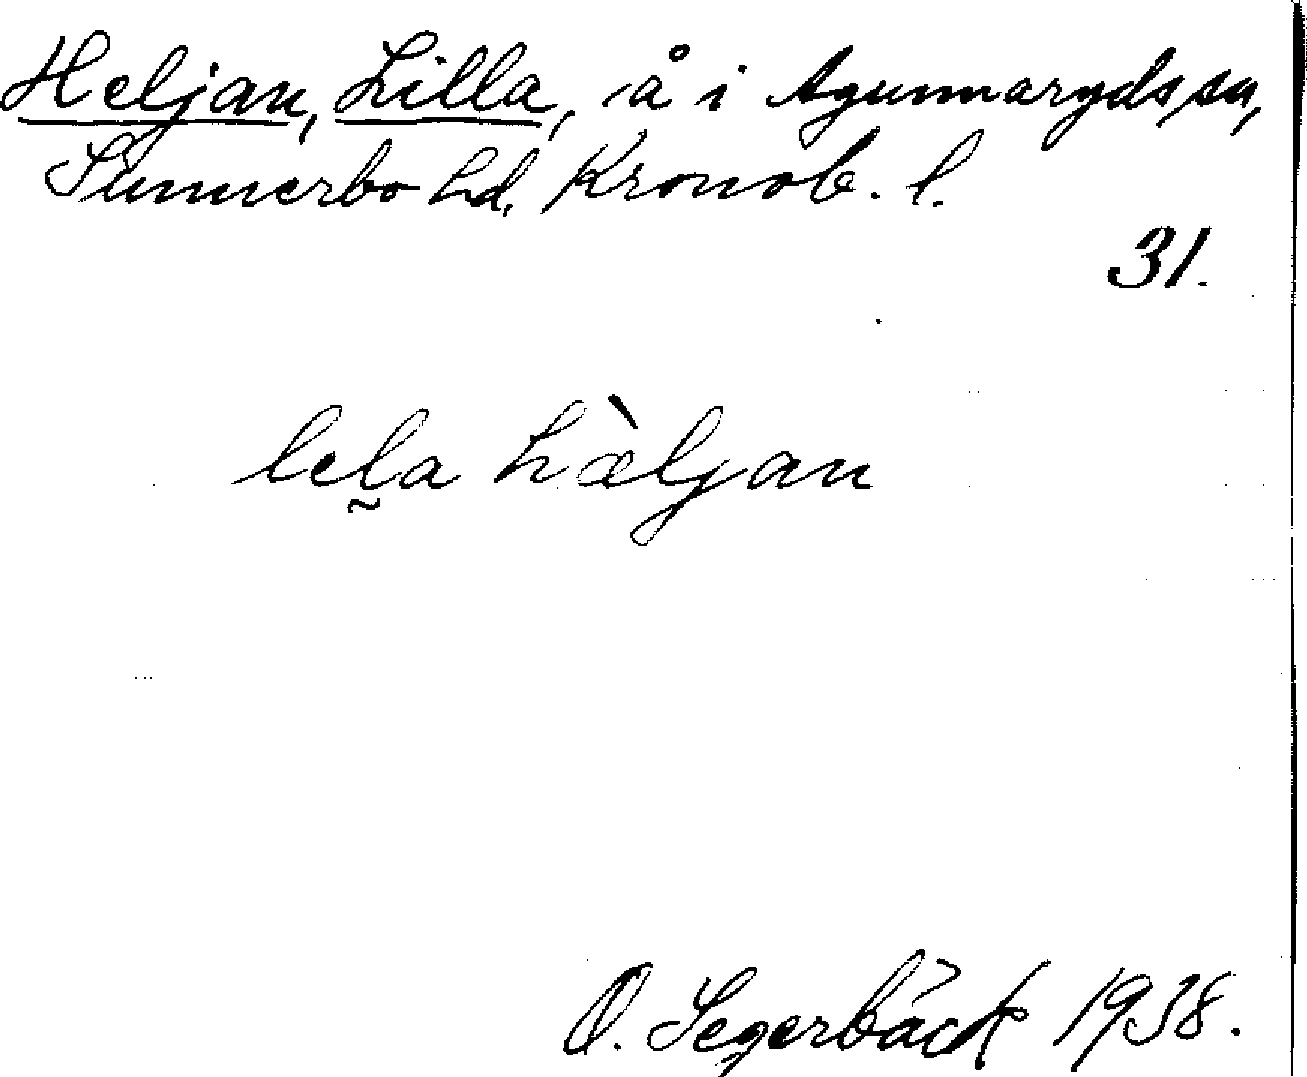 Heljan, Lilla, å i Agunnaryds sn,
Sunnerbo hd, Kronob. l.
31.
lel̰a hæ̀ljan
O. Segerbäck 1938.